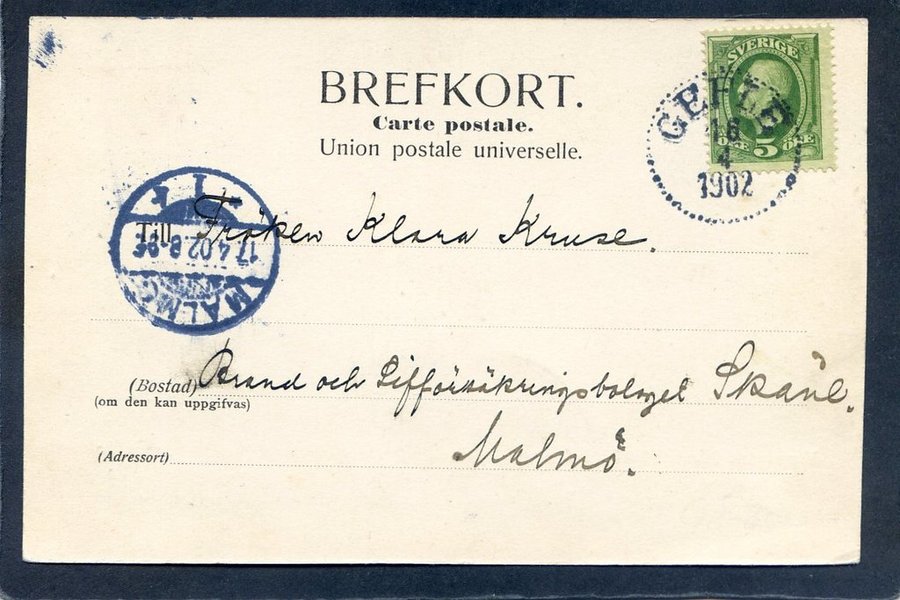 BREFKORT.
Carte postale.
Union postale universelle.
SVERIGE
5
ÖRE ÖRE
GEFLE
16
4
1902
Till Fröken Klara Kruse.
17.4.02.8
MALMÖ
(Bostad) Brand och Lifförsäkringsbolaget Skåne.
(om den kan uppgifvas)
(Adressort) Malmö.